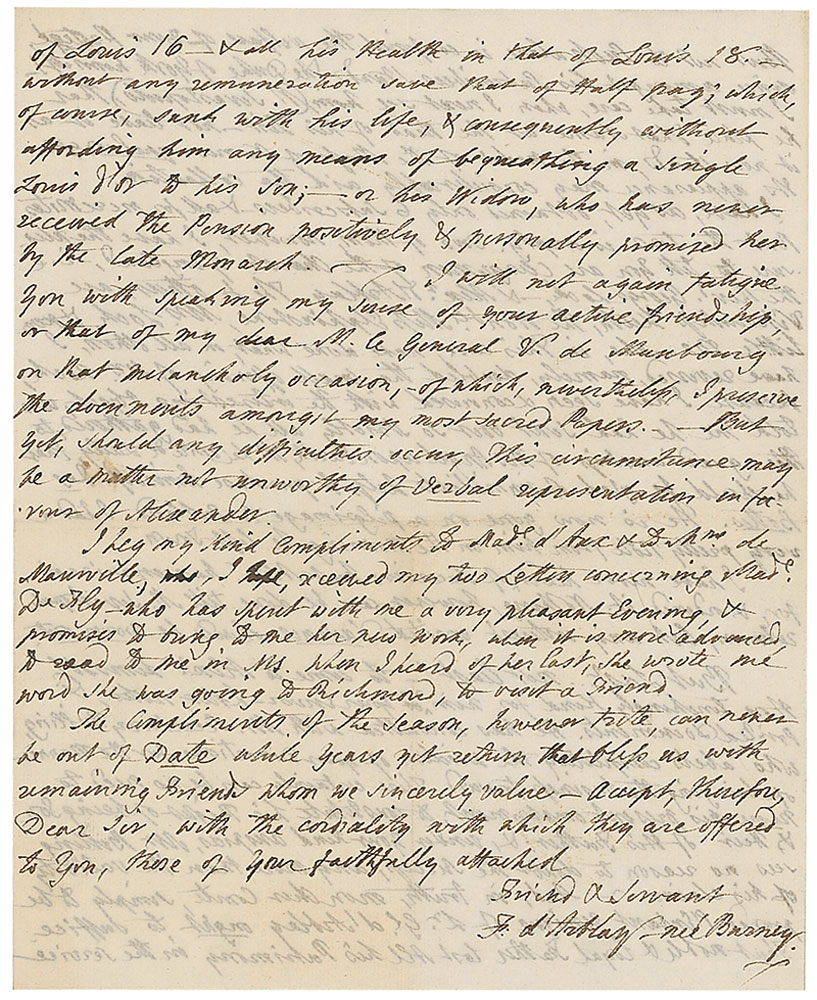 of Louis 16 — & all his Health in that of Louis 18. —
without any remuneration save that of Half pay; which,
of course, sunk with his life, & consequently without
affording him any means of bequeathing a single
Louis d'or to his Son; — or his Widow, who has never
received the Pension positively & personally promised her
by the late Monarch. — I will not again fatigue
You with speaking my Sense of your active friendship,
or that of my dear M. le General V. de Maubourg
on that melancholy occasion, - of which, nevertheless, I preserve
the documents amongst my most sacred Papers. — But
yet, should any difficulties occur, This circumstance may
be a matter not unworthy of Verbal representation in fa-
vour of Alexander.
I beg my kind Compliments to Made. d'Aux & to Mme de
Maurville, who, I hope, received my two Letters concerning Made.
De who has spent with me a very pleasant Evening, &
promises to bring to me her new work, when it is more advanced,
to read to me in Ms. when I heard of her last, she wrote me
word she was going to Richmond, to visit a Friend.
The Compliments of the Season, however trite, can never
be out of Date while Years yet return that bless us with
remaining Friends whom we sincerely value — Accept, therefore,
Dear Sir, with the cordiality with which they are offered
to You, those of Your faithfully attached
Friend & Servant
F. d'Arblay née Burney.